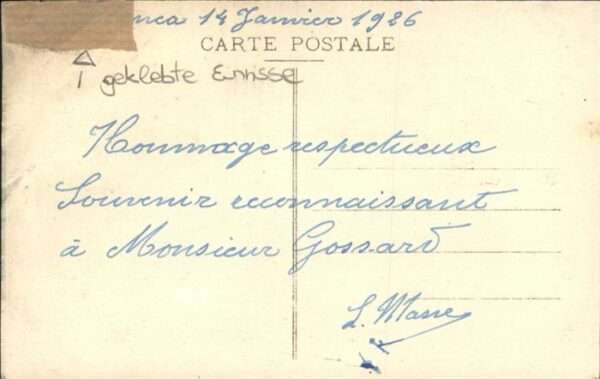 14 Janvier 1926
CARTE POSTALE
geklebte Einrisse
Hommage respectueux
Souvenir reconnaissant
à Monsieur Gossard
L. Masse